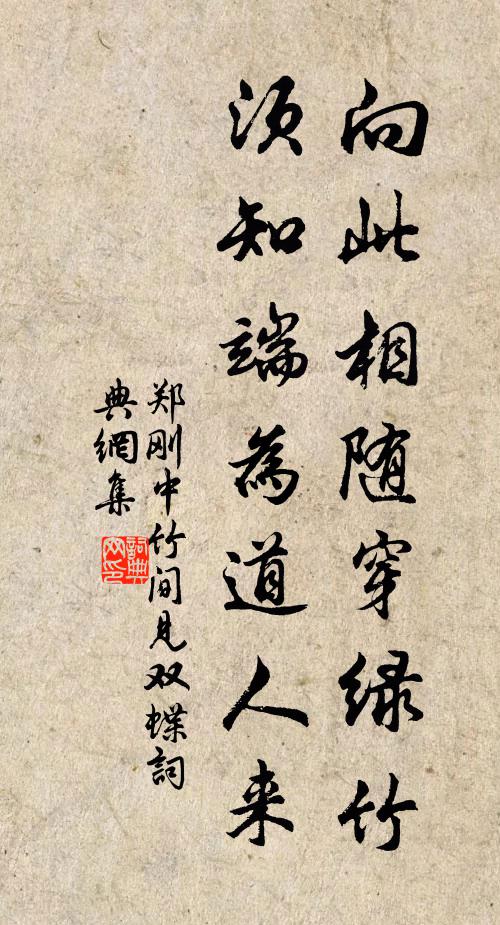 向此相随穿绿竹
须知端為道人来
郑刚中竹间見双蝶詞
典網集
詞典
网印